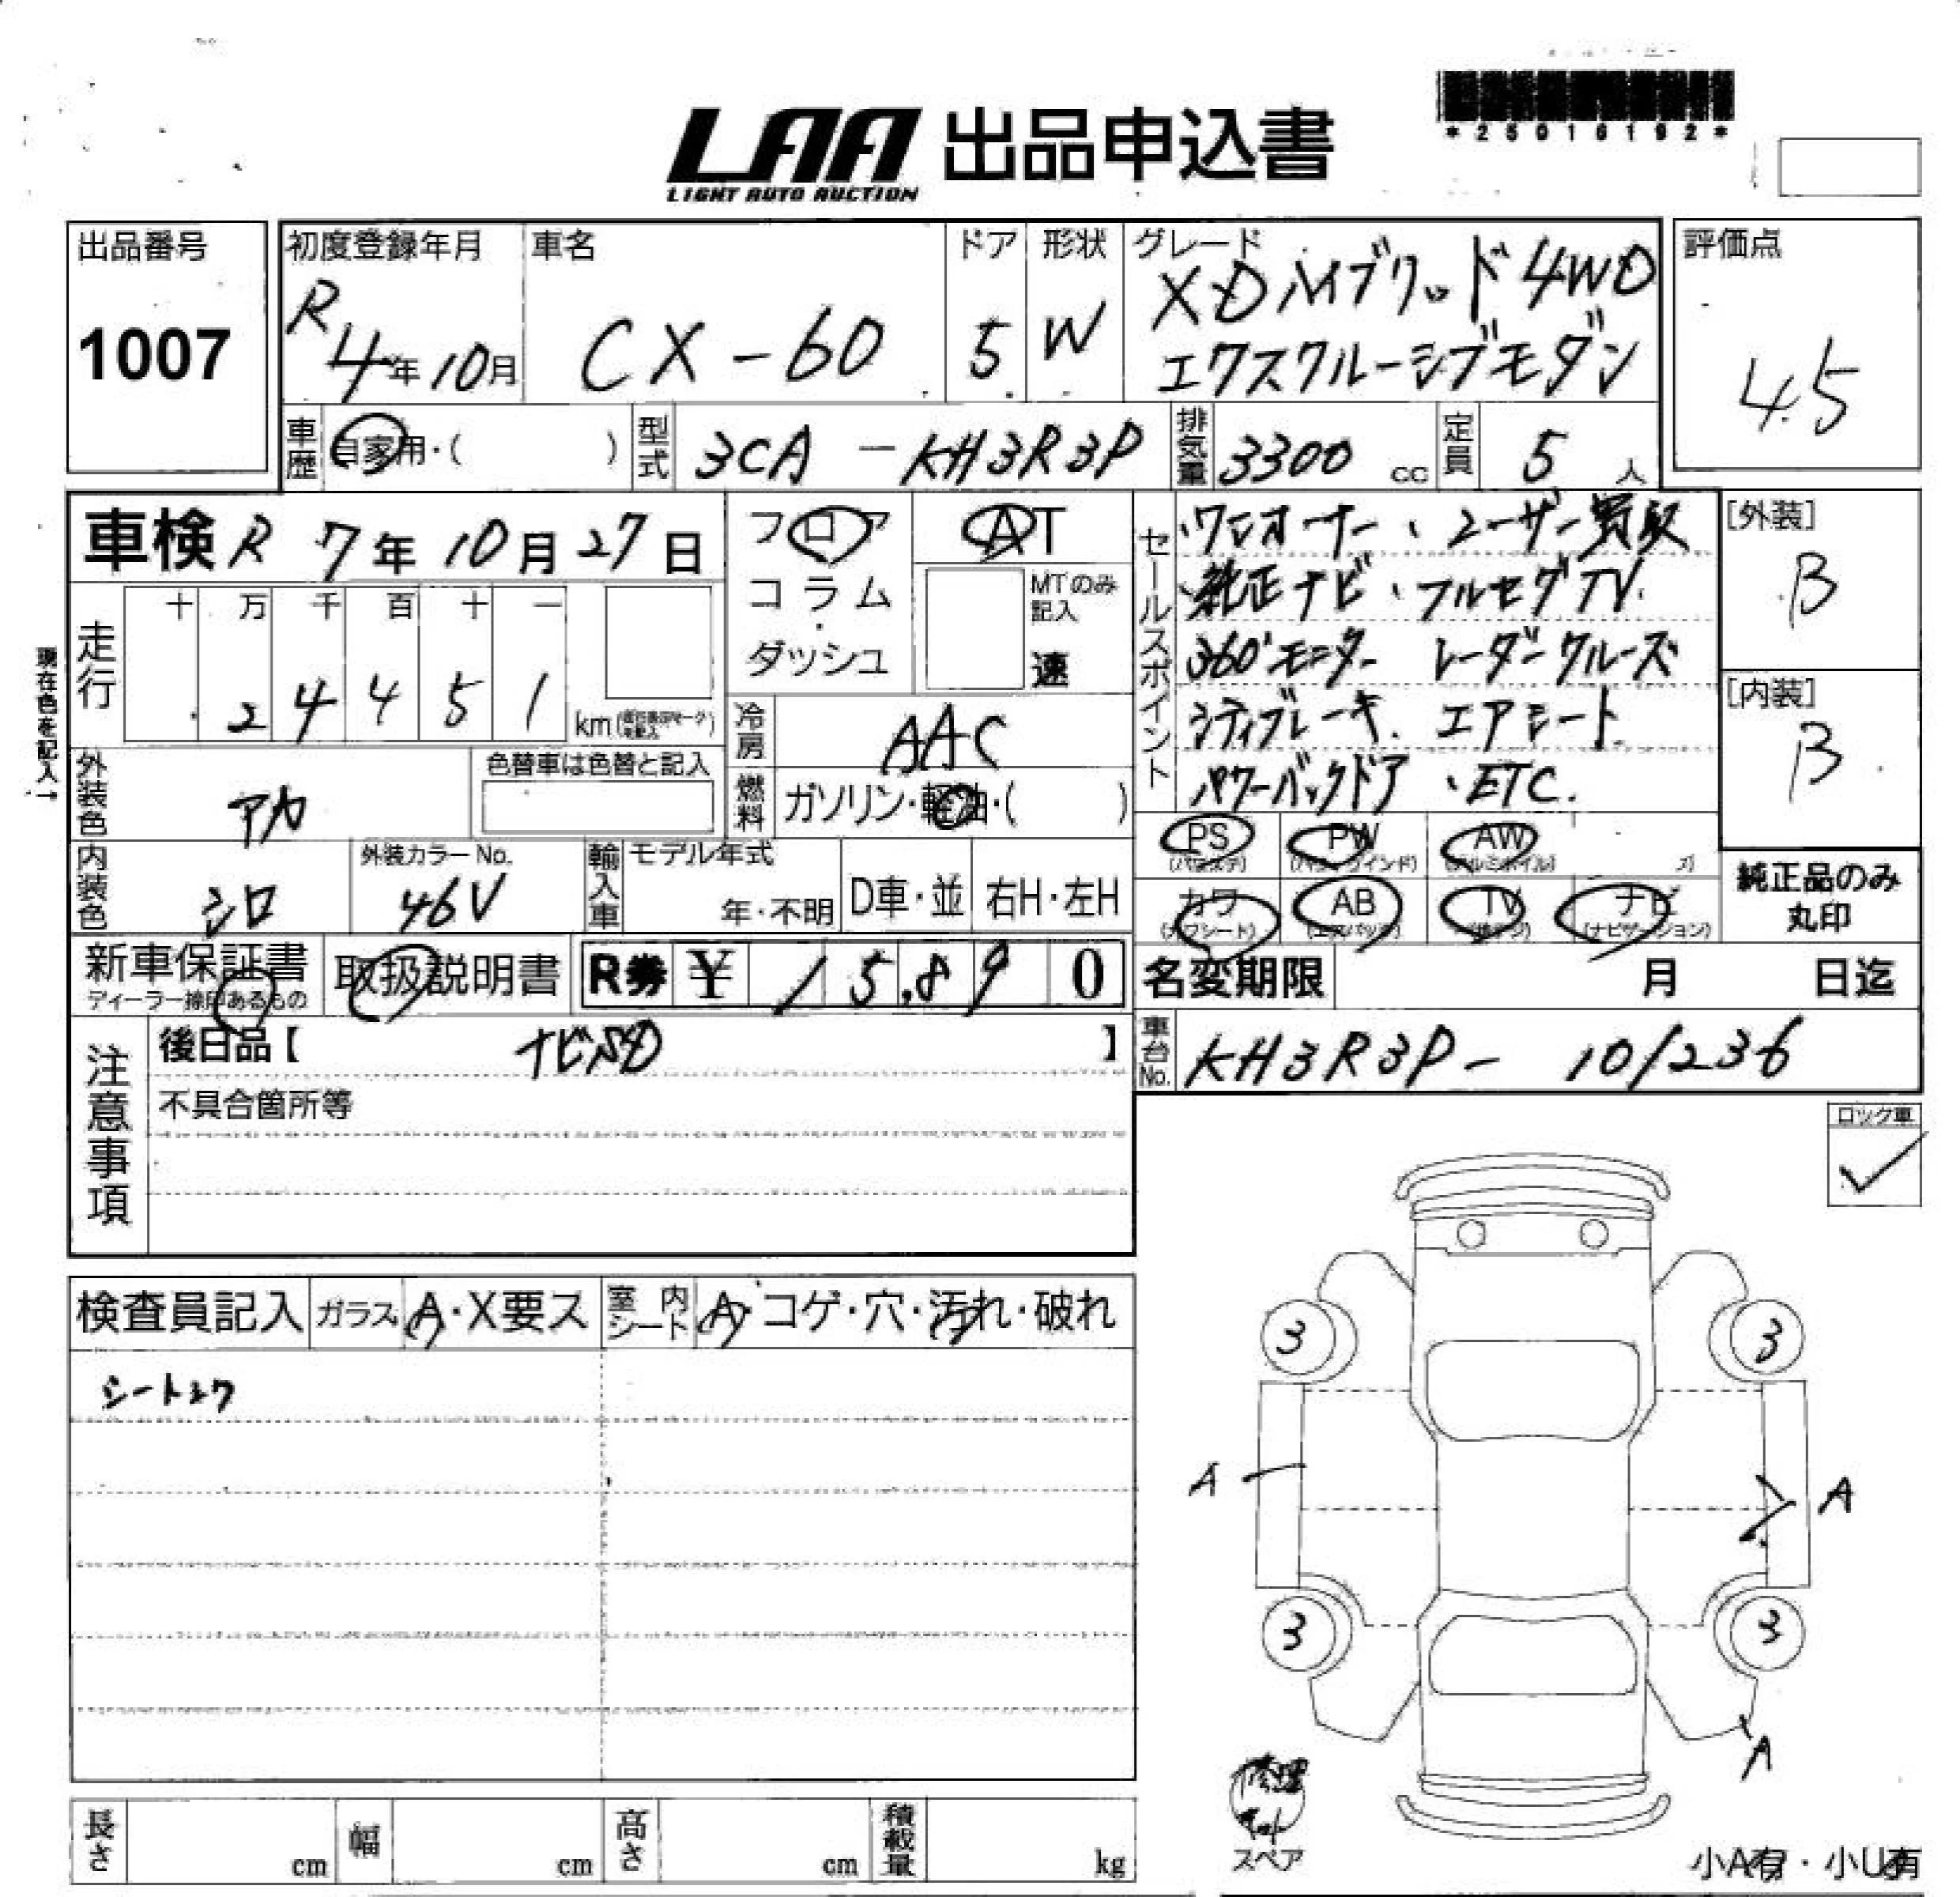 *25016192*
LAA 出品申込書
LIGHT AUTO AUCTION
出品番号
1007
初度登録年月
R4年10月
車名
CX-60
ドア
5
形状
W
グレード
XDハイブリッド4WD
エクスクルーシブモダン
評価点
4.5
車歴
自家用・( )
型式
3CA-KH3R3P
排気量
3300cc
定員
5人
車検 R7年10月27日
走行
十 万 千 百 十 一
2 4 4 5 1 km
現在色を記入→
フロア
コラム
・
ダッシュ
AT
MTのみ記入
速
冷房
AAC
燃料
ガソリン・軽油・( )
外装色
アカ
色替車は色替と記入
内装色
シロ
外装カラーNo.
46V
輸入車
モデル年式
年・不明
D車・並
右H・左H
セールスポイント
・ワンオーナー、ユーザー買取
・純正ナビ、フルセグTV.
360°モニター レーダークルーズ
シティブレーキ. エアシート
パワーバックドア 、ETC.
[外装]
B
[内装]
B
PS
(パワステ)
PW
(パワーウインド)
AW
(アルミホイル)
カワ
(カワシート)
AB
(エアバック)
TV
ナビ
(ナビゲーション)
純正品のみ
丸印
新車保証書
ディーラー捺印あるもの
取扱説明書
R券 ¥ 15,890
名変期限 月 日迄
車台No.
KH3R3P- 101236
注意事項
後日品【 ナビSD 】
不具合箇所等
ロック車
検査員記入
ガラス
A・X要ス
室内シート
A・コゲ・穴・汚れ・破れ
シートシワ
3
3
A
A
3
3
A
修理
キット
スペア
小A有・小U有
長さ cm
幅 cm
高さ cm
積載量 kg